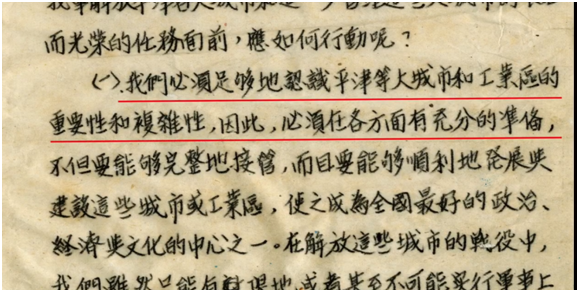 而光荣的任務面前，應如何行動呢？
㈠.我們必須足够地認識平津等大城市和工業區的
重要性和複雜性，因此，必須在各方面有充分的準備，
不但要能够完整地接管，而且要能够順利地發展與
建設這些城市或工業區，使之成為全國最好的政治、
經濟與文化的中心之一。在解放這些城市的戰役中，